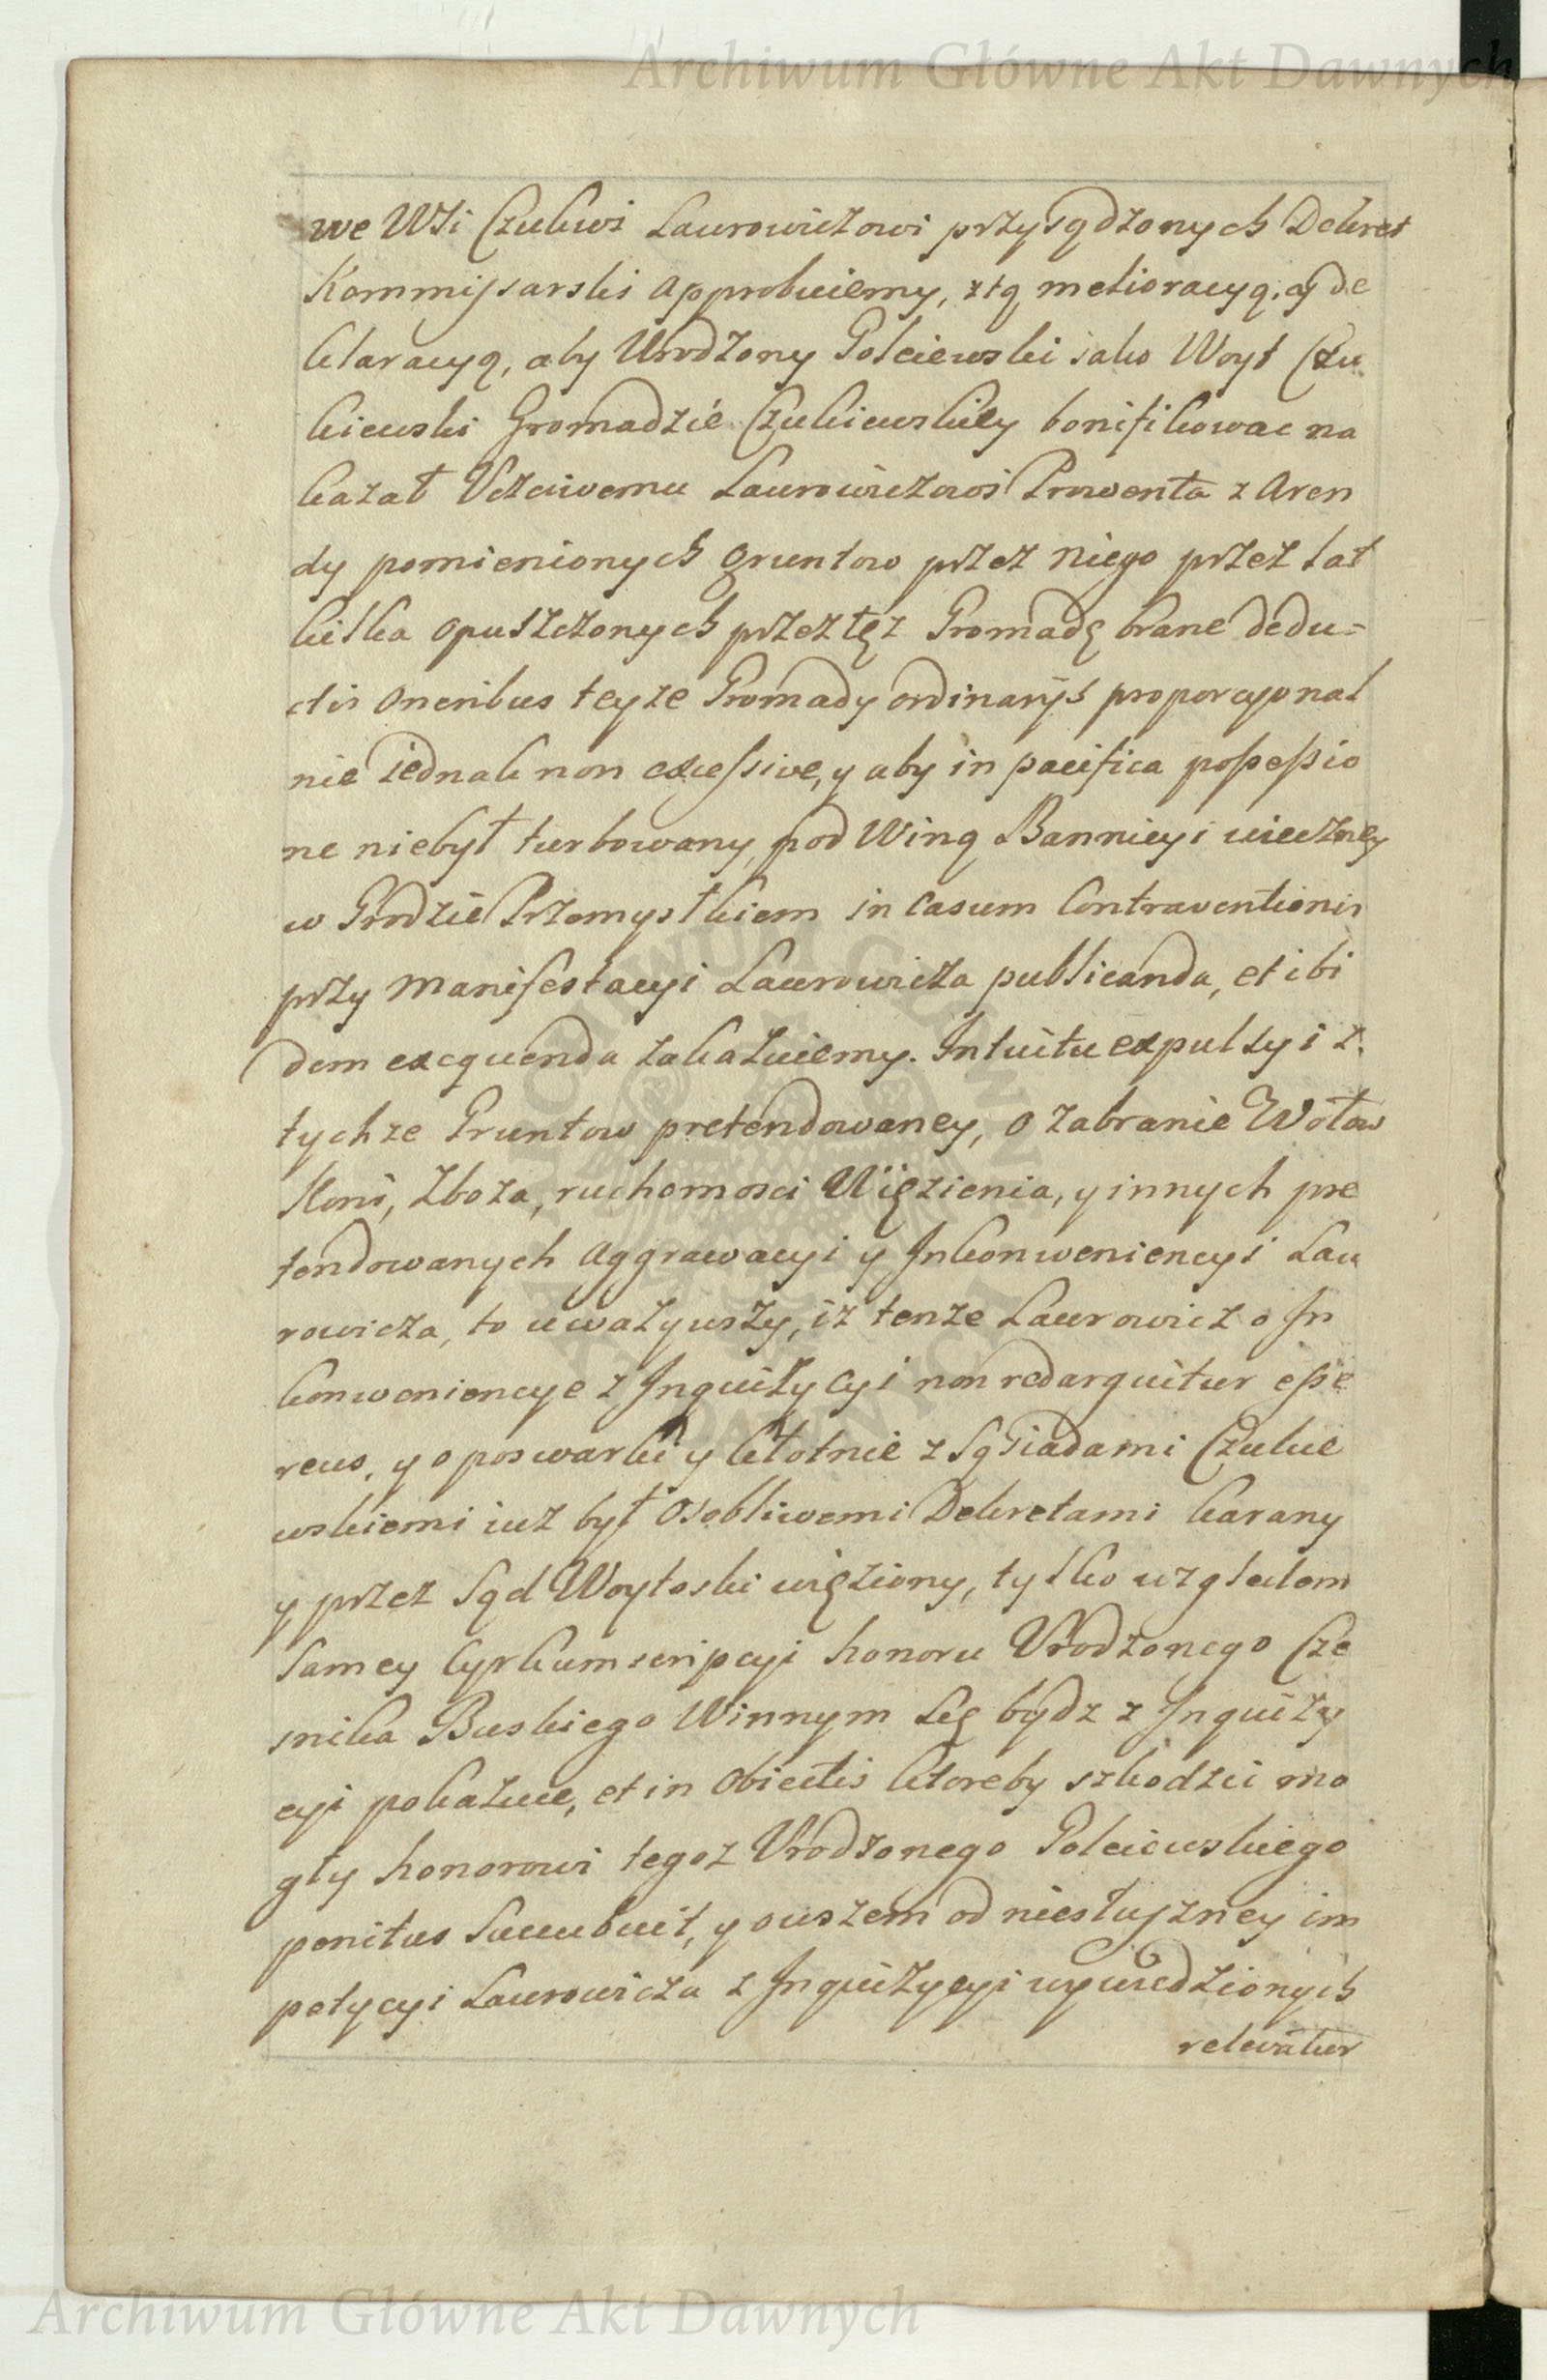 Archiwum Główne Akt Dawnych
we Wsi Czukwi Laurowiczowi przysądzonych Dekret
Kommissarski approbuiemy, z tą melioracyą, ay de
klaracyą, aby Urodzony Polciewski iako Woyt Czu
kiewski Gromadzie Czukiewskiey bonifikowac na
kazał Uczciwemu Laurowiczowi Prowenta z Aren
dy pomienionych gruntow przez niego przez lat
kilka opuszczonych przez tęz Gromadę brane dedu=
ctis oneribus teyze Gromady ordinarijs proporcyonal
nie iednak non excessive, y aby in pacifica possessio
ne niebył turbowany, pod Winą Bannicyi wieczney
w Grodzie Przemyslkiem in casum Contraventionis
przy manifestacyi Laurowicza publicanda, et ibi
dem exequenda zakazuiemy. Intuitu expulsyi z
tychze Gruntow pretendowaney, o zabranie Wołow
Koni, Zboza, ruchomosci Więzienia, y innych pre
tendowanych aggrawacyi y Inkonweniencyi Lau
rowicza, to uwazywszy, iz tenze Laurowicz o In
konweniencye z Inquizycyi non redarguitur esse
reus, y o poswarki y kłotnie z Sąsiadami Czukie
wskiemi iuz był osobliwemi Dekretami karany
y przez Sąd Woytoski więziony, tylko względem
samey Cyrkumscripcyi honoru Urodzonego Cze
snika Buskiego Winnym się bydz z Inquizy
cyi pokazuie, et in Obiectis ktoreby szkodzic mo
gły honorowi tegoz Urodzonego Polciewskiego
penitus Succubuit, y owszem od niesłuszney im
petycyi Laurowicza z Inquizycyi wywiedzionych
relevatur
Archiwum Główne Akt Dawnych